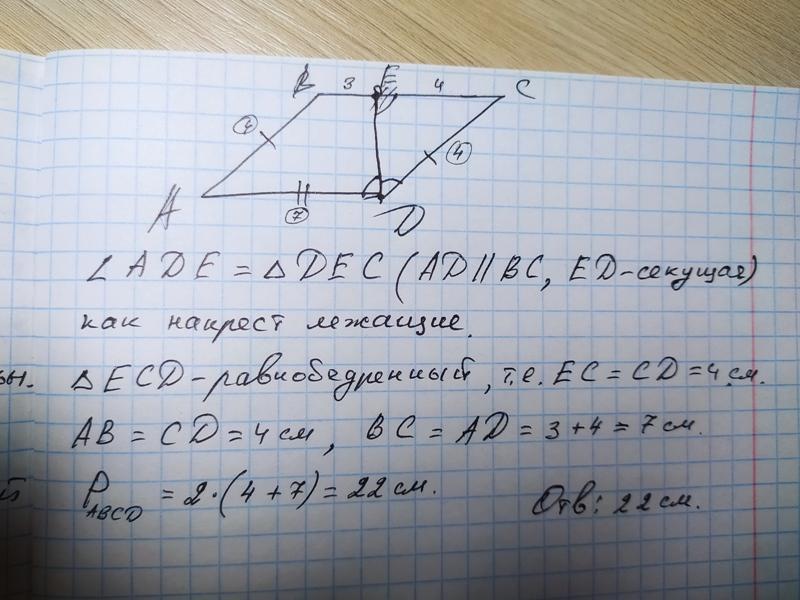 B 3 E 4 C
4 4
A 7 D
∠ ADE = △ DEC (AD || BC, ED-секущая)
как накрест лежащие.
ы. △ ECD - равнобедренный, т.е. EC = CD = 4 см.
AB = CD = 4 см, BC = AD = 3 + 4 = 7 см.
й P ABCD = 2 · (4 + 7) = 22 см. Отв: 22 см.